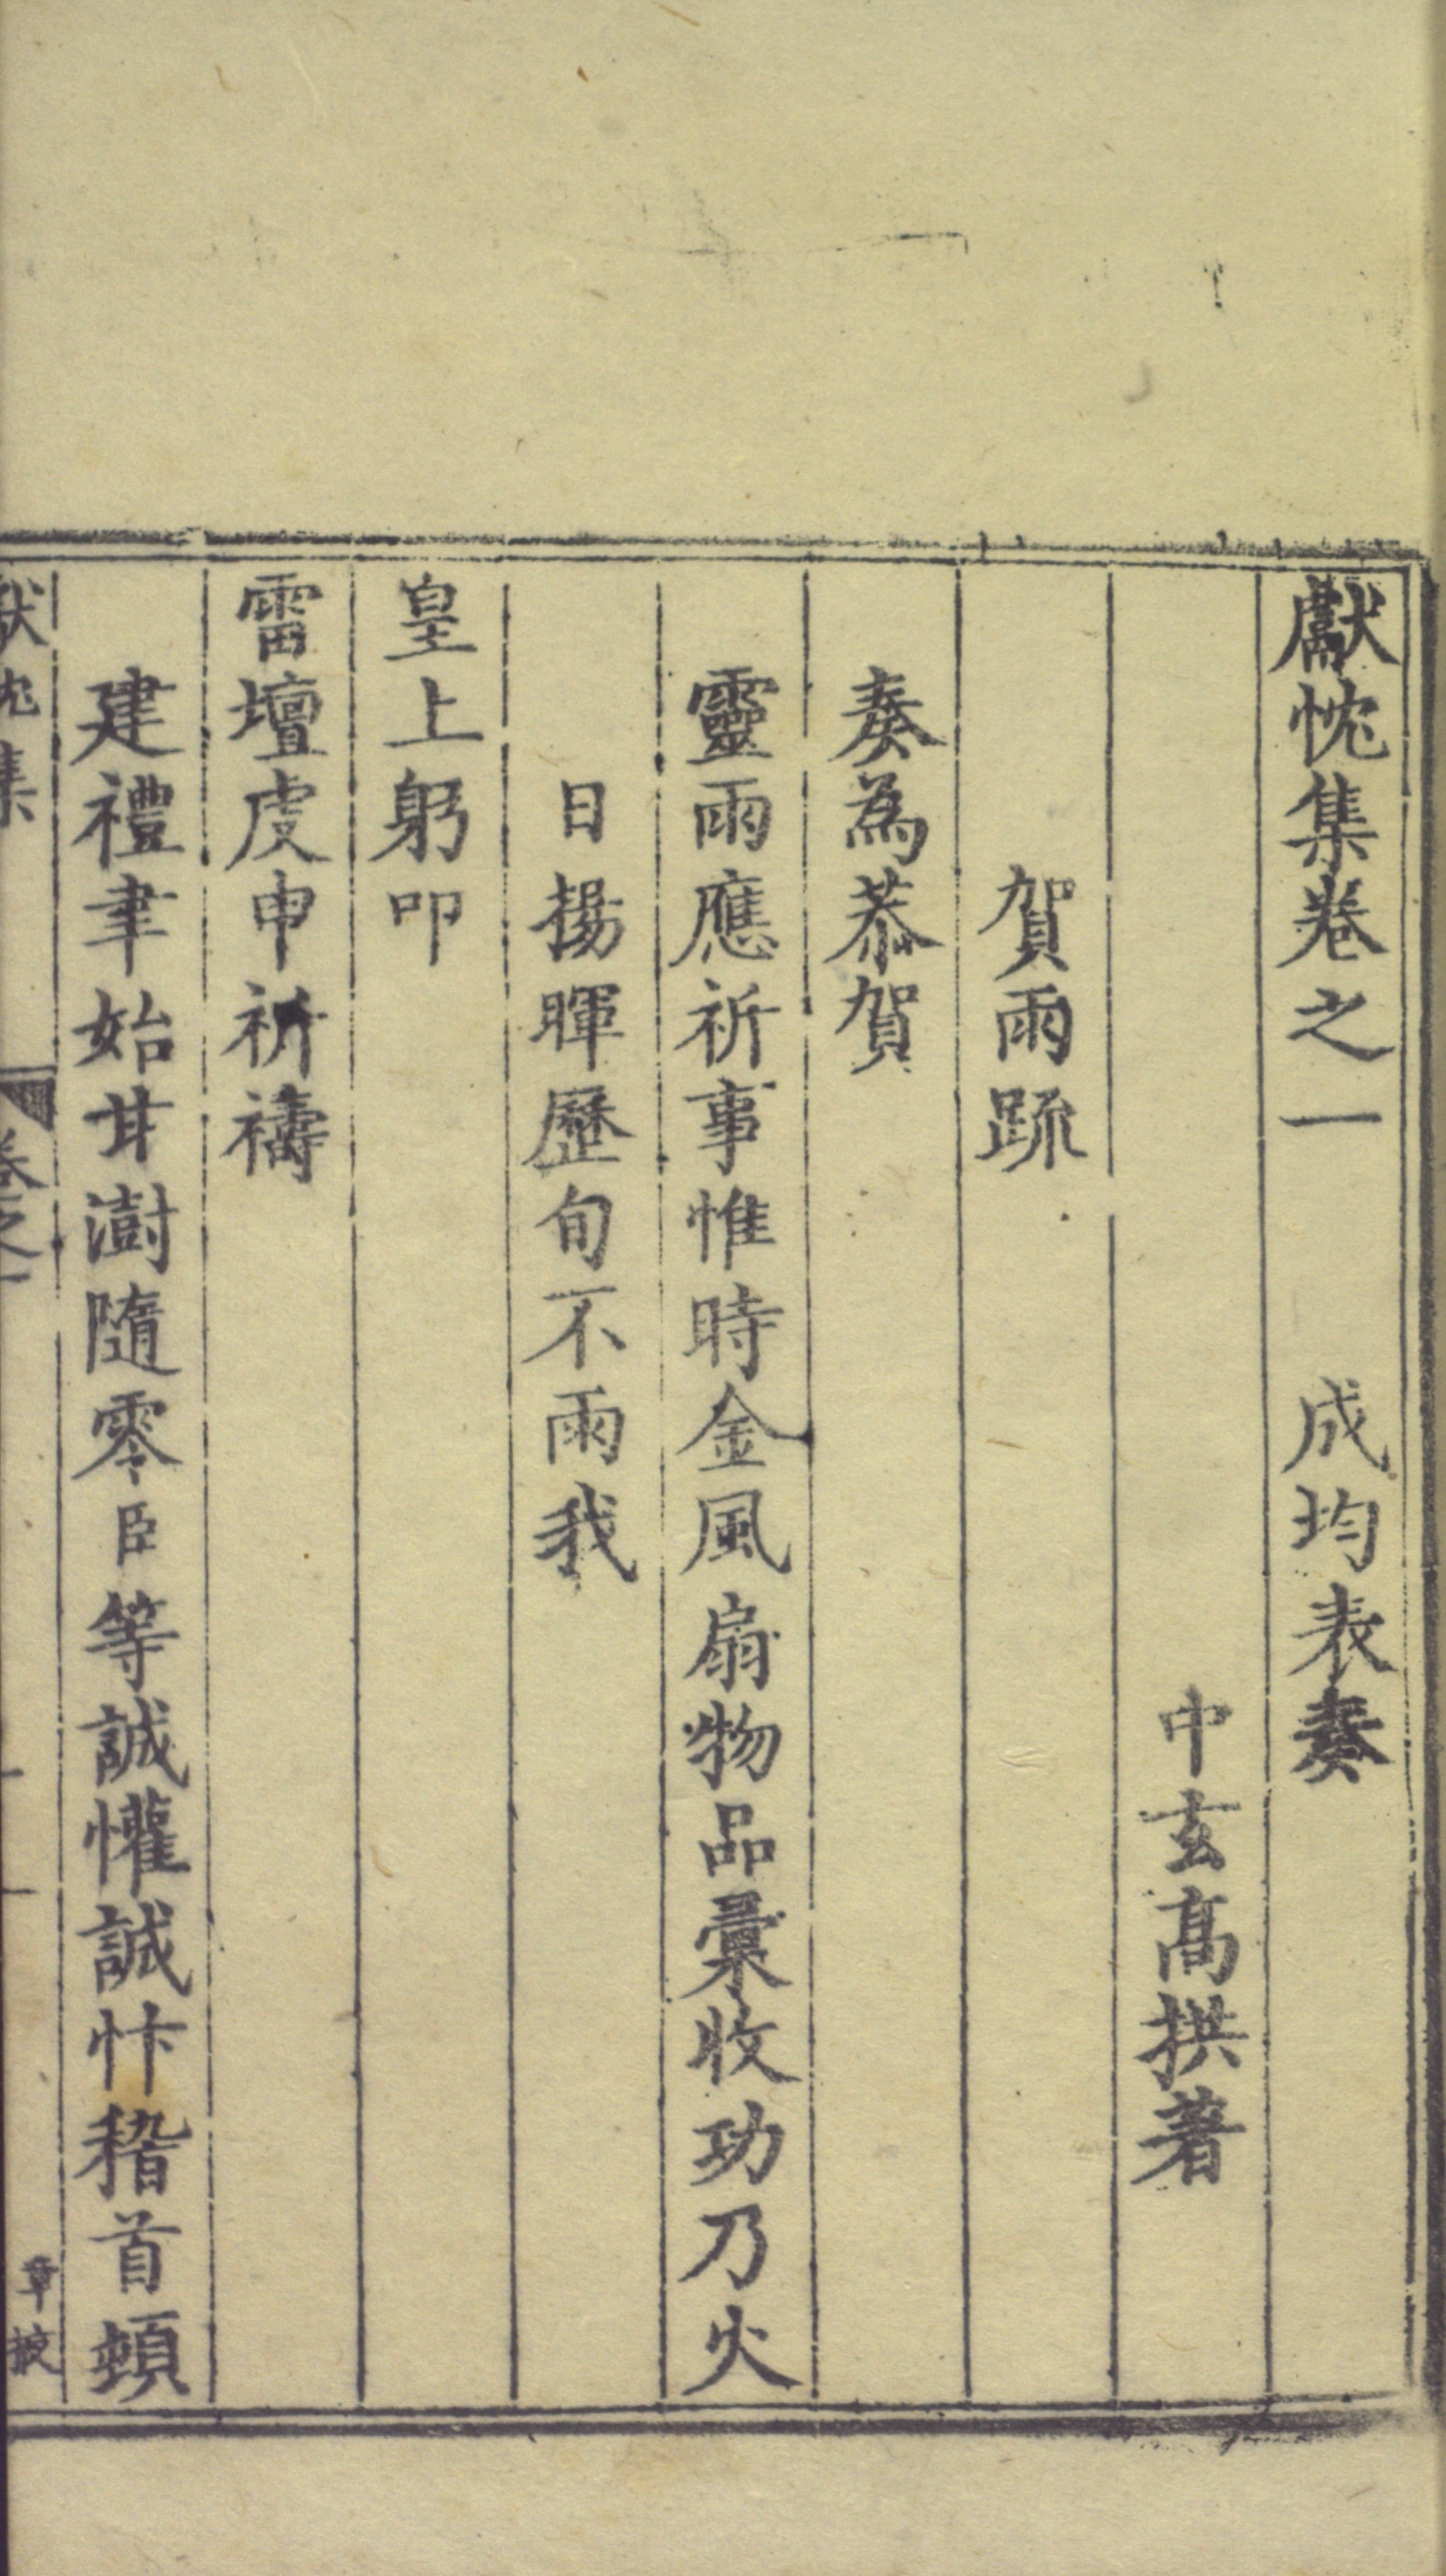 獻忱集卷之一 成均表奏
中玄高拱著
賀雨疏
奏為恭賀
靈雨應祈事惟時金風扇物品彙收功乃火
日揚暉歷旬不雨我
皇上躬叩
雷壇虔申祈禱
建禮聿始甘澍隨零臣等誠懽誠忭稽首頓
獻忱集 卷之一